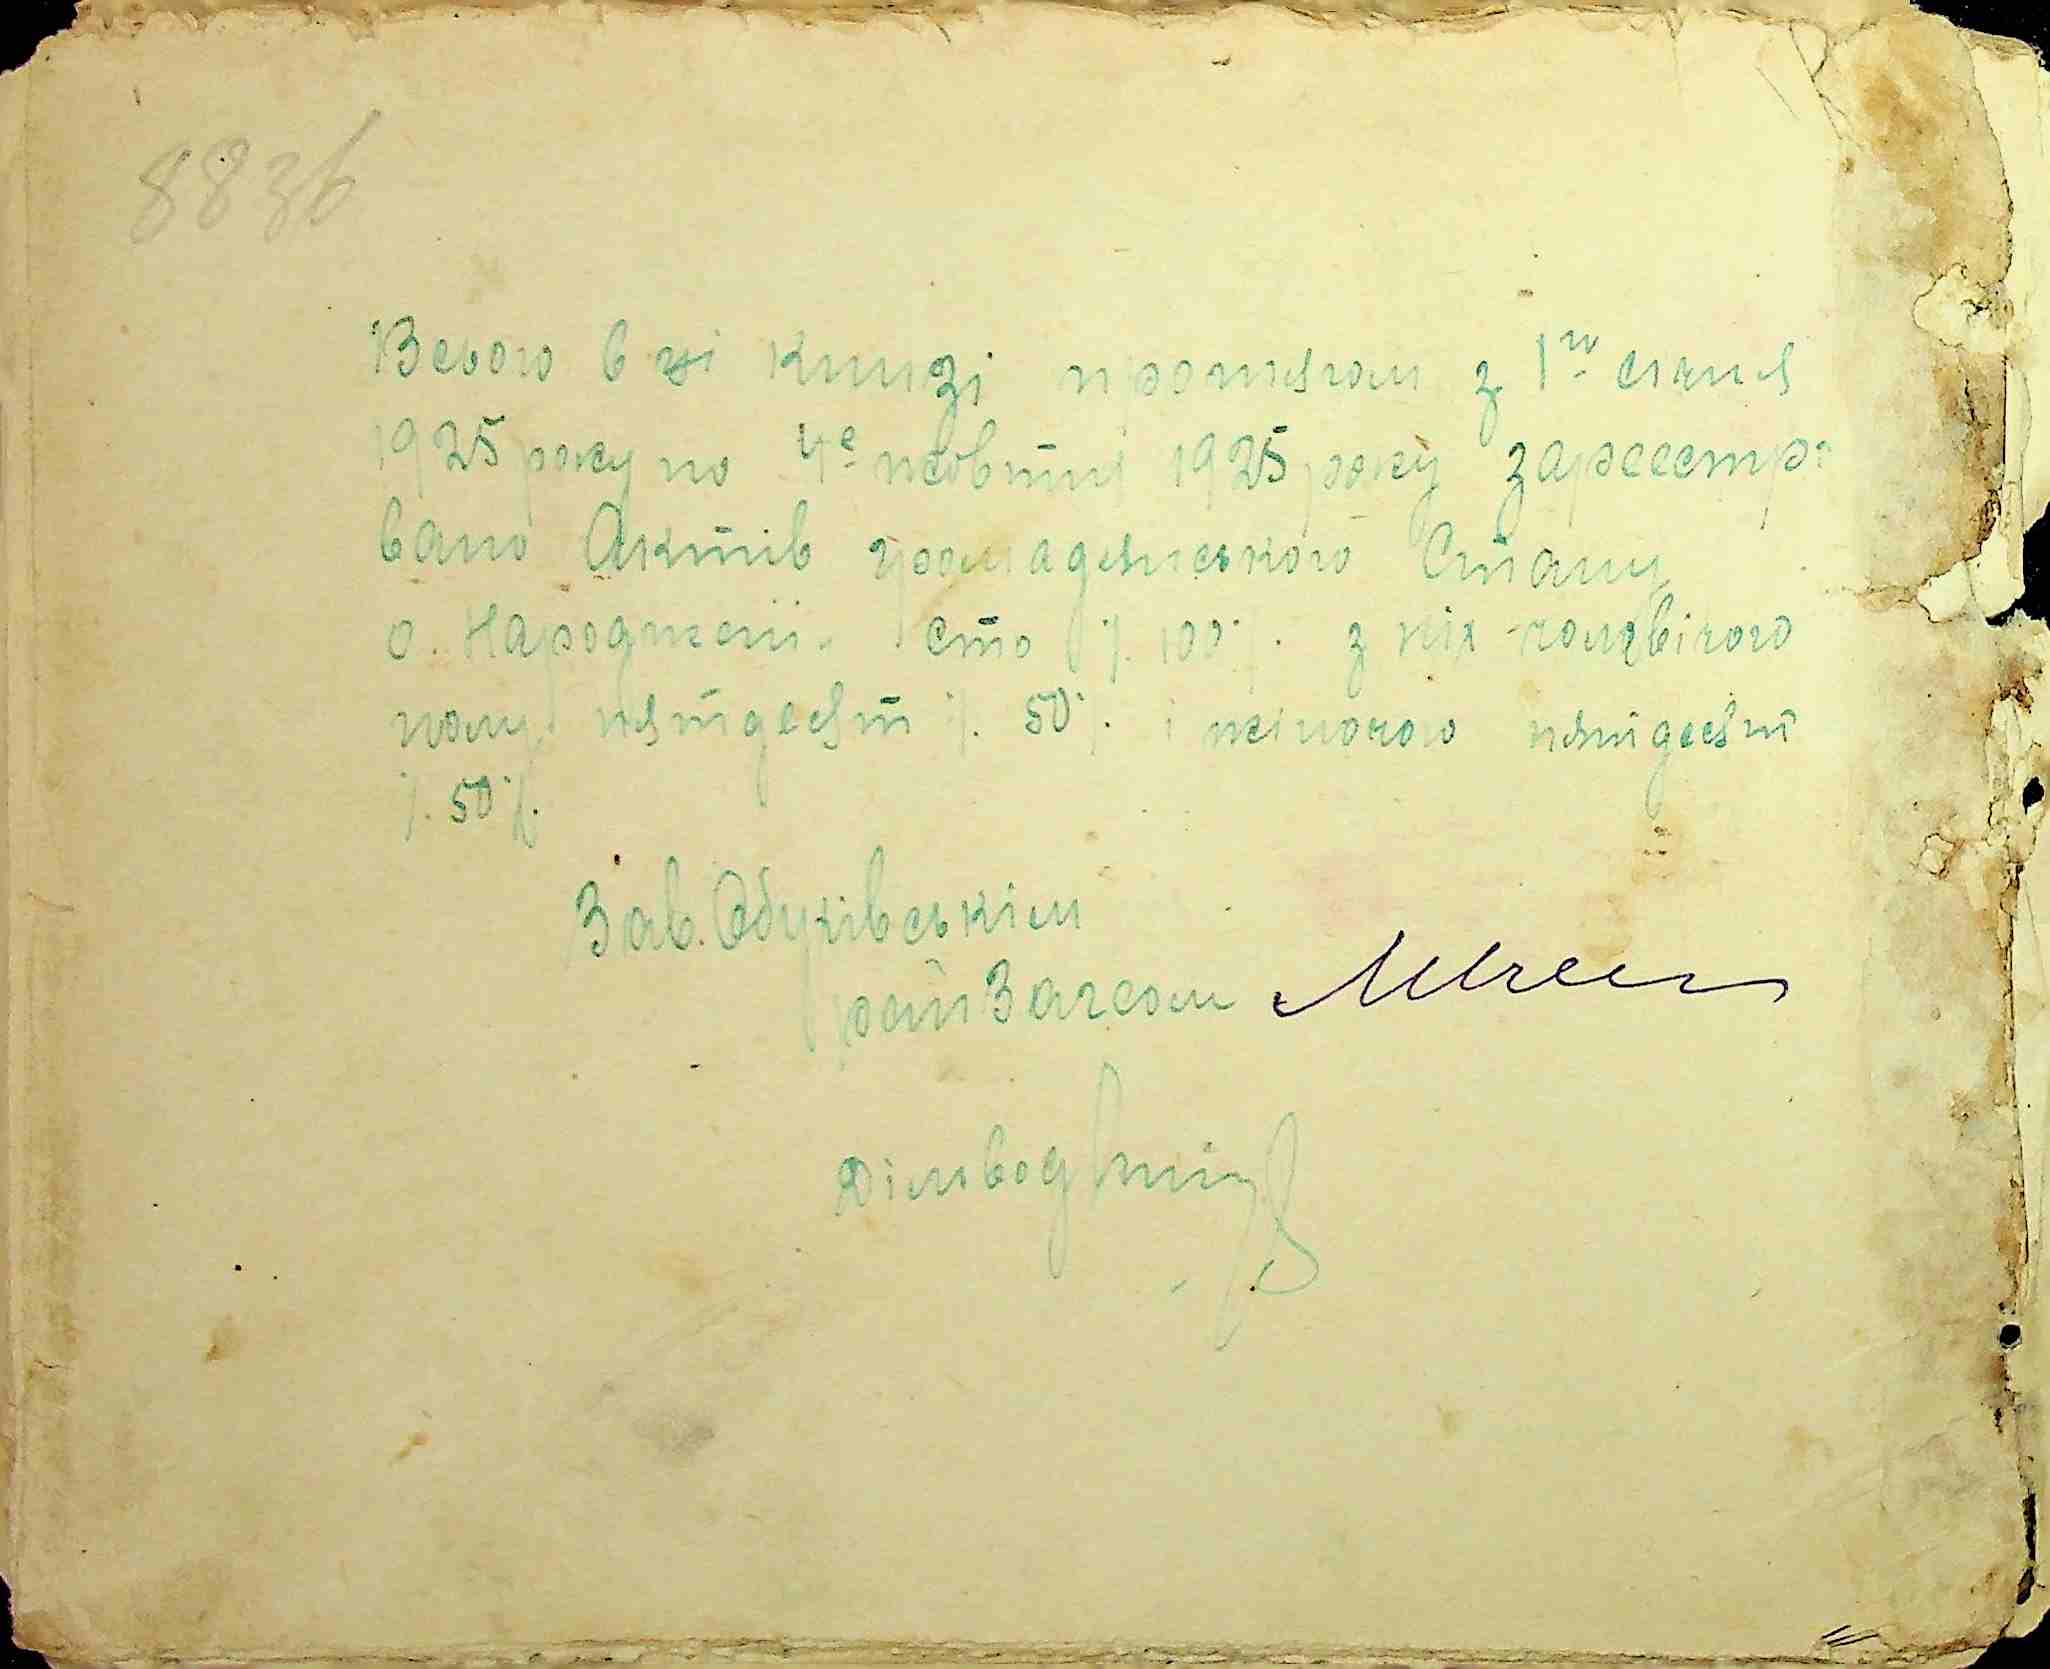 8836
Всього в ці книзі протягом з 1го січня
1925 року по 4е жовтня 1925 року зареєстро
вано Актів громадянського Стану
о. Народжені. сто /.100/. з них чоловічого
полу пятдесят /. 50/. і жіночого пятдесят
/. 50/.
Зав. Обухівськім
рай Загсом
Діловод